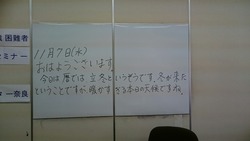 困難者
セミナー
奈良
11月7日(水)
おはようございます。
今日は暦では立冬というそうです。冬が来た
ということですが、暖かすぎる本日の天候ですね。